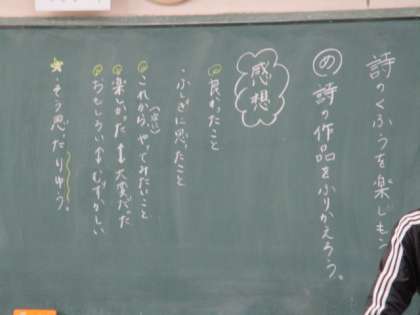 詩のくふうを楽しもう
め 詩の作品をふりかえろう。
感想
良かったこと
・ふしぎに思ったこと
これから、やってみたいこと
楽しかった↔大変だった
おもしろい↔むずかしい
★そう思ったりゆう。